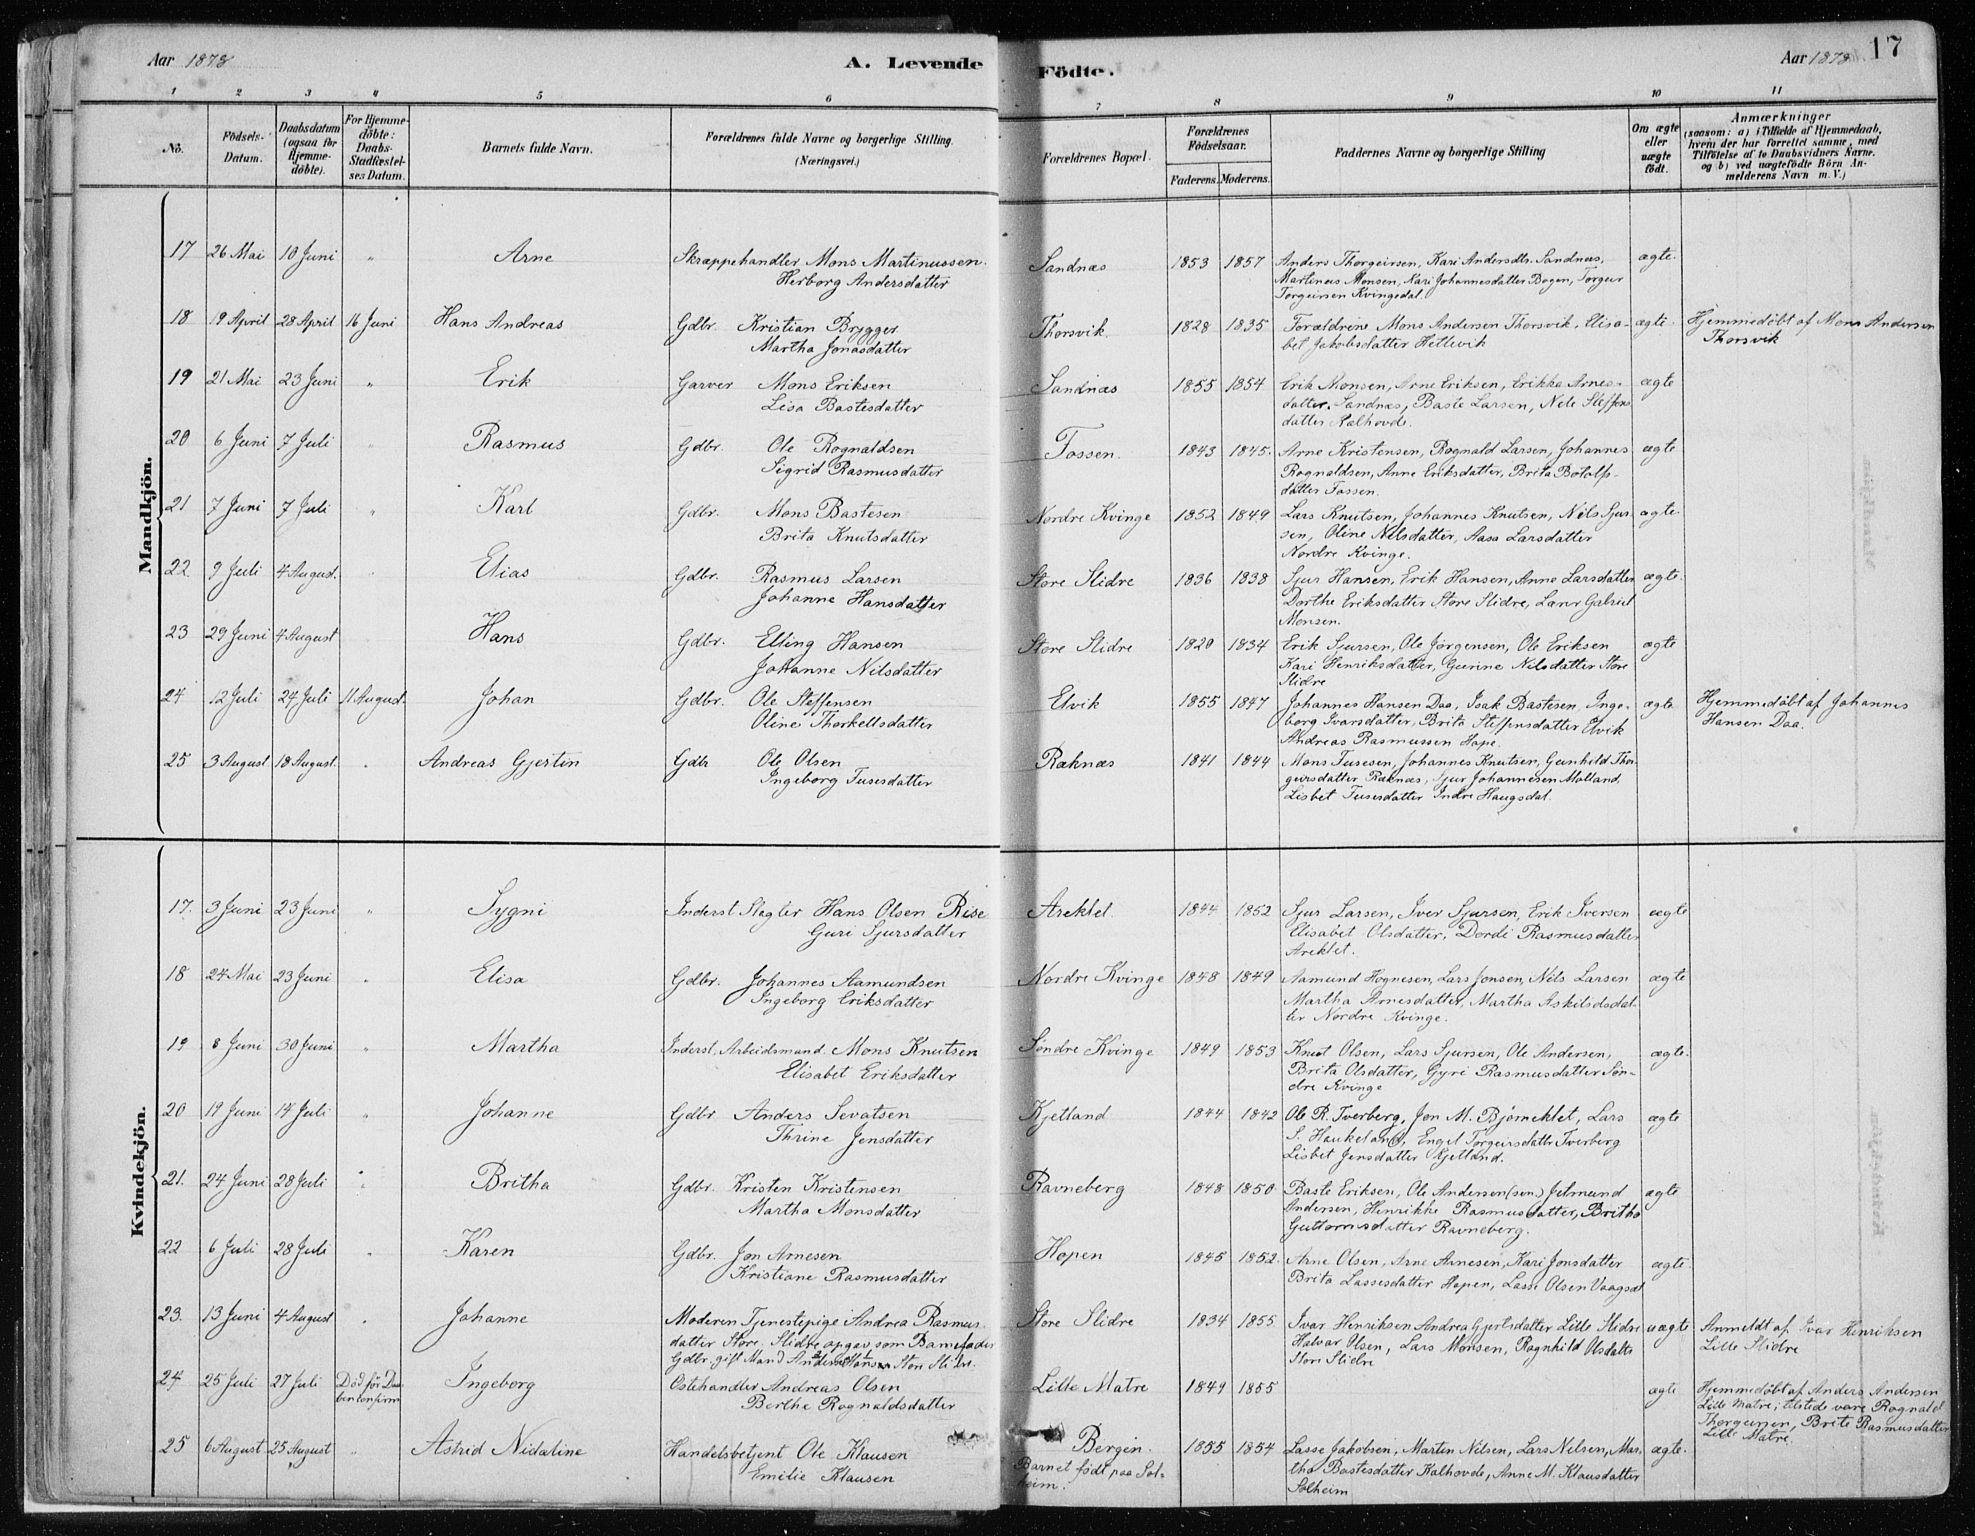 Aar 1878
A. Levende Födte.
Aar 1878
17
1 2 3 4 5 6 7 8 9 10 11
No.
Födsels-Datum.
Daabsdatum (ogsaa for Hjemme-döbte).
For Hjemme-döbte: Daabs-Stadfæstel-ses Datum.
Barnets fulde Navn.
Forældrenes fulde Navne og borgerlige Stilling. (Næringsvei.)
Forældrenes Bopæl.
Forældrenes Födselsaar.
Faderens. Moderens.
Faddernes Navne og borgerlige Stilling
Om ægte eller uægte födt.
Anmærkninger (saasom: a) i Tilfælde af Hjemmedaab, hvem der har forrettet samme, med Tilföielse af to Daabsvidners Navne. og b) ved uægtefödte Börn An-melderens Navn m. V.)
Mandkjön.
17 26 Mai 10 Juni " Arne Skræppehandler Mons Martinussen. Sandnæs 1853 1857 Anders Thorgeirsen, Kari Andersdtr. Sandnæs, ægte.
Herborg Andersdatter Martinus Monsen, Kari Johannesdatter Bogen, Torgeir
Torgeirsen Kvingedal.
18 19 April 28 April 16 Juni Hans Andreas Gdbr. Kristian Brygger Thorsvik. 1828 1835 Forældrene Mons Andersen Thorsvik, Elisa- ægte. Hjemmedøbt af Mons Andersen
Martha Jonasdatter bet Jakobsdatter Hellevik Thorsvik
19 21 Mai 23 Juni " Erik Garver Mons Eriksen Sandnæs 1855 1854 Erik Monsen, Arne Eriksen, Erikka Arnes- ægte
Lisa Bastesdatter datter Sandnæs, Baste Larsen, Nele Steffens
datter Kalhovde.
20 6 Juni 7 Juli " Rasmus Gdbr. Ole Rognaldsen Fossen. 1843 1845. Arne Kristensen, Rognald Larsen, Johannes ægte
Sigrid Rasmusdatter Rognaldsen, Anne Eriksdatter, Brita Botolfs-
datter Fossen.
21 7 Juni 7 Juli " Karl Gdbr. Mons Bastesen Nordre Kvinge 1852 1849 Lars Knutsen, Johannes Knutsen, Nils Sjur- ægte.
Brita Knutsdatter sen, Oline Nilsdatter, Aasa Larsdatter
Nordre Kvinge.
22 9 Juli 4 August. Elias Gdbr. Rasmus Larsen Store Slidre 1836 1838 Sjur Hansen, Erik Hansen, Anne Larsdatter ægte.
Johanne Hansdatter Dorthe Eriksdatter Store Slidre, Lars Gabriel
Monsen.
23 29 Juni 4 August Hans Gdbr. Elling Hansen Store Slidre 1820 1834 Erik Sjursen, Ole Jørgensen, Ole Eriksen ægte
Johanne Nilsdatter Kari Henriksdatter, Gurine Nilsdatter Store
Slidre
24 12 Juli 24 Juli 11 August. Johan Gdbr. Ole Steffensen Elvik 1855 1847 Johannes Hansen Daa, Isak Bastesen, Inge- ægte Hjemmedøbt af Johannes
Oline Thorkellsdatter borg Ivarsdatter, Brita Steffensdatter Elvik Hansen Daa.
Andreas Rasmussen Hope.
25 3 August 18 August. " Andreas Gjertin Gdbr Ole Olsen Raknæs 1841 1844 Mons Fusesen, Johannes Knutsen, Gunhild Thor-
Ingeborg Fusesdatter geirsdatter Raknæs, Sjur Johannesen Molland
Lisbet Fusesdatter Indre Haugsdal.
Kvindekjön.
17. 3 Juni 23 Juni " Sygni Inderst Slagter Hans Olsen Rise Areklet 1844 1852 Sjur Larsen, Iver Sjursen, Erik Iversen ægte
Guri Sjursdatter Elisabet Olsdatter, Dordi Rasmusdatter
Areklet.
18 24 Mai 23 Juni " Elisa Gdbr. Johannes Aamundsen Nordre Kvinge 1848 1849 Aamund Hognesen, Lars Jonsen, Nils Larsen ægte
Ingeborg Eriksdatter Martha Arnesdatter, Martha Askildsdat-
ter Nordre Kvinge.
19 8 Juni 30 Juni " Martha Inderst, Arbeidsmand Mons Knutsen Søndre Kvinge 1849 1853 Knut Olsen, Lars Sjursen, Ole Andersen, ægte.
Elisabet Eriksdatter Brita Olsdatter, Gyri Rasmusdatter Søn-
dre Kvinge
20 19 Juni 14 Juli " Johanne Gdbr Anders Sevatsen Kjetland 1844 1842 Ole R. Tverberg, Jon M. Bjørneklet, Lars ægte
Thrine Jensdatter S. Haukeland, Engel Torgeirsdatter Tverberg
Lisbet Jensdatter Kjetland.
21. 24 Juni 28 Juli " Britha Gdbr. Kristen Kristensen Ravneberg 1848 1850 Baste Eriksen, Ole Andersen (sen.) Jetmund ægte
Martha Monsdatter Andersen, Henrikke Rasmusdatter, Britha
Guttormsdatter Ravneberg.
22 6 Juli 28 Juli " Karen Gdbr. Jon Arnesen Hopen 1845 1852. Arne Olsen, Arne Arnesen, Kari Jonsdatter ægte.
Kristiane Rasmusdatter Brita Lassesdatter Hopen, Lasse Olsen Vaagsæt
23. 13 Juni 4 August " Johanne Moderen Tjenestepige Andrea Rasmus- Store Slidre 1834 1855 Ivar Henriksen Andrea Gjertsdatter Lille Slidre uægte Anmeldt af Ivar Henriksen
datter Store Slidre, opgav som Barnefader Halvar Olsen, Lars Monsen, Ragnhild Olsdatter Lille Slidre
Gdbr. gift Mand Anders Hansen Store Slidre. Store Slidre
24 25 Juli 27 Juli Død før Daa- Ingeborg Ostehandler Andreas Olsen Lille Matre 1849 1855 ægte Hjemmedøbt af Anders Andersen
ben confirm Berthe Rognaldsdatter Lille Matre; tilstede vare Rognald
Thorgeirsen, Brite Rasmusdatter
Lille Matre.
25 6 August 25 August " Astrid Nidaline Handelsbetjent Ole Klausen Bergen. 1855 1854 Lasse Jakobsen, Martin Nilsen, Lars Nilsen, Mar- ægte.
Emilie Klausen Barnet født paa Sol- tha Bastesdatter Kalhovde, Anne M. Klausdatter
heim. Solheim